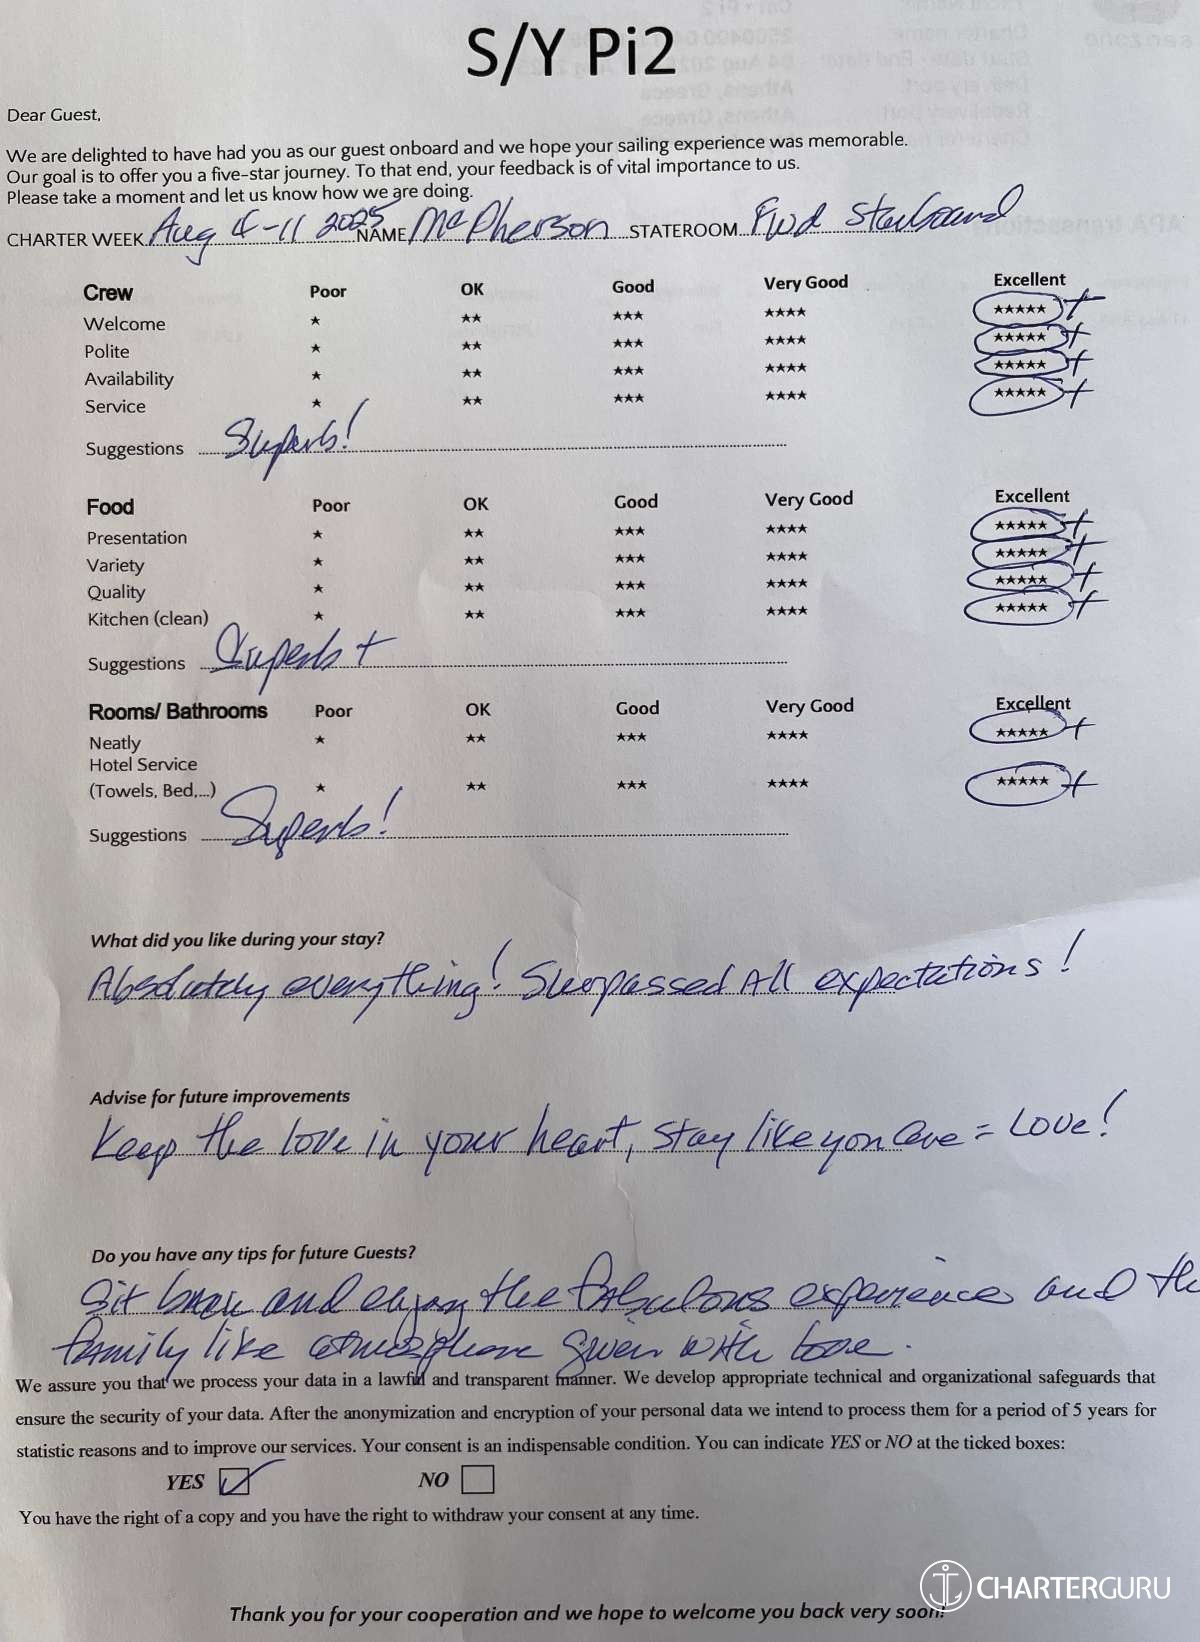 S/Y Pi2
Dear Guest,
We are delighted to have had you as our guest onboard and we hope your sailing experience was memorable.
Our goal is to offer you a five-star journey. To that end, your feedback is of vital importance to us.
Please take a moment and let us know how we are doing.
CHARTER WEEK Aug 4-11 2025 NAME McPherson STATEROOM Fwd Starboard
Crew Poor OK Good Very Good Excellent
Welcome ★ ★★ ★★★ ★★★★ ★★★★★ +
Polite ★ ★★ ★★★ ★★★★ ★★★★★ +
Availability ★ ★★ ★★★ ★★★★ ★★★★★ +
Service ★ ★★ ★★★ ★★★★ ★★★★★ +
Suggestions Superb!
Food Poor OK Good Very Good Excellent
Presentation ★ ★★ ★★★ ★★★★ ★★★★★ +
Variety ★ ★★ ★★★ ★★★★ ★★★★★ +
Quality ★ ★★ ★★★ ★★★★ ★★★★★ +
Kitchen (clean) ★ ★★ ★★★ ★★★★ ★★★★★ +
Suggestions Superb +
Rooms/ Bathrooms Poor OK Good Very Good Excellent
Neatly ★ ★★ ★★★ ★★★★ ★★★★★ +
Hotel Service
(Towels, Bed,...) ★ ★★ ★★★ ★★★★ ★★★★★ +
Suggestions Superb!
What did you like during your stay?
Absolutely everything! Surpassed All expectations!
Advise for future improvements
Keep the love in your heart, stay like you are = Love!
Do you have any tips for future Guests?
Sit back and enjoy the fabulous experience and the
family like atmosphere given with love.
We assure you that we process your data in a lawful and transparent manner. We develop appropriate technical and organizational safeguards that
ensure the security of your data. After the anonymization and encryption of your personal data we intend to process them for a period of 5 years for
statistic reasons and to improve our services. Your consent is an indispensable condition. You can indicate YES or NO at the ticked boxes:
YES NO
You have the right of a copy and you have the right to withdraw your consent at any time.
CHARTERGURU
Thank you for your cooperation and we hope to welcome you back very soon!